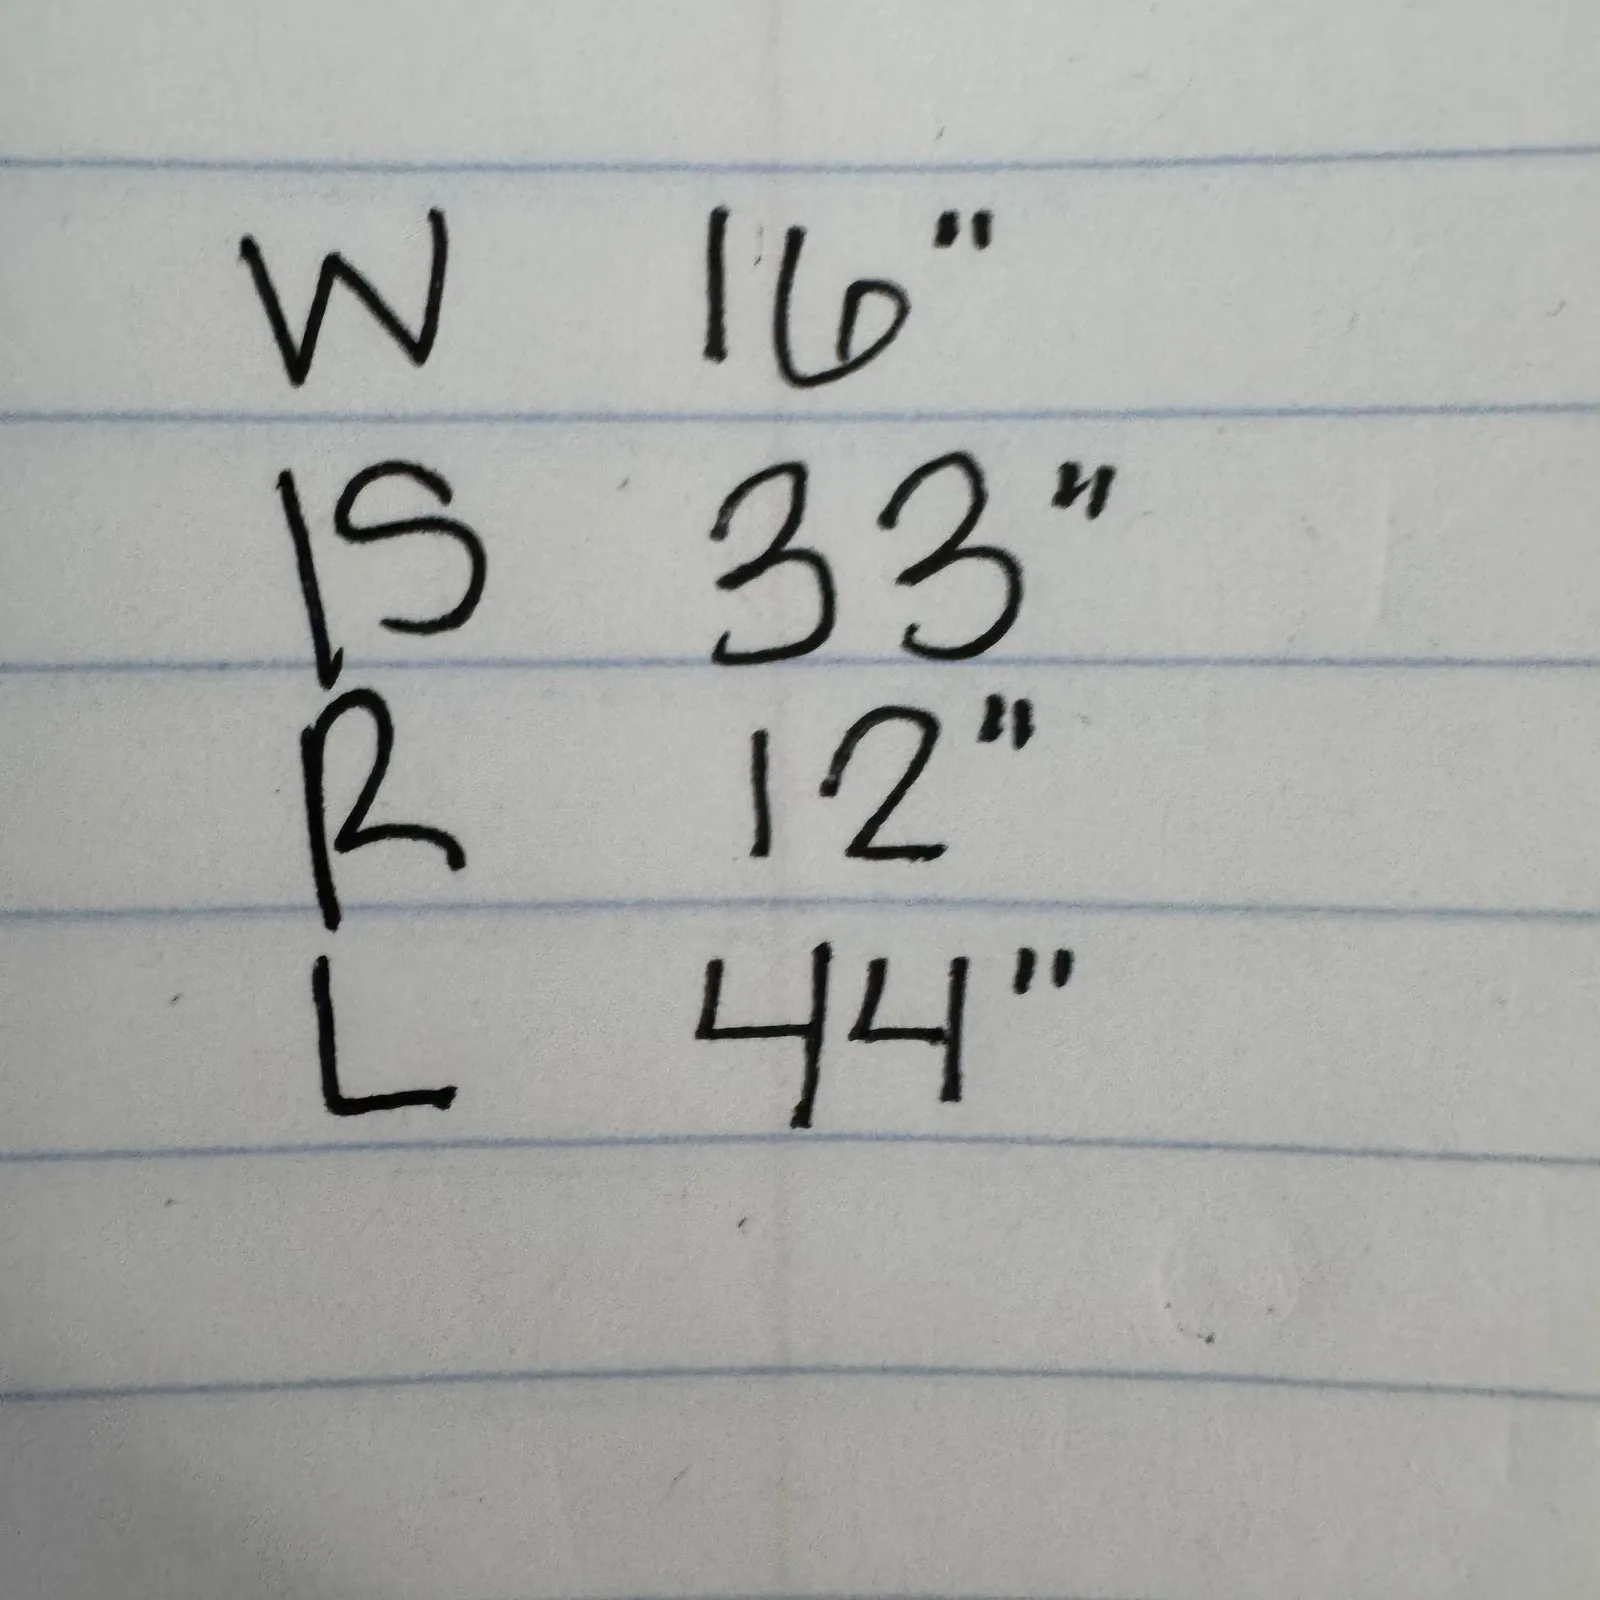 W 16"
IS 33"
R 12"
L 44"